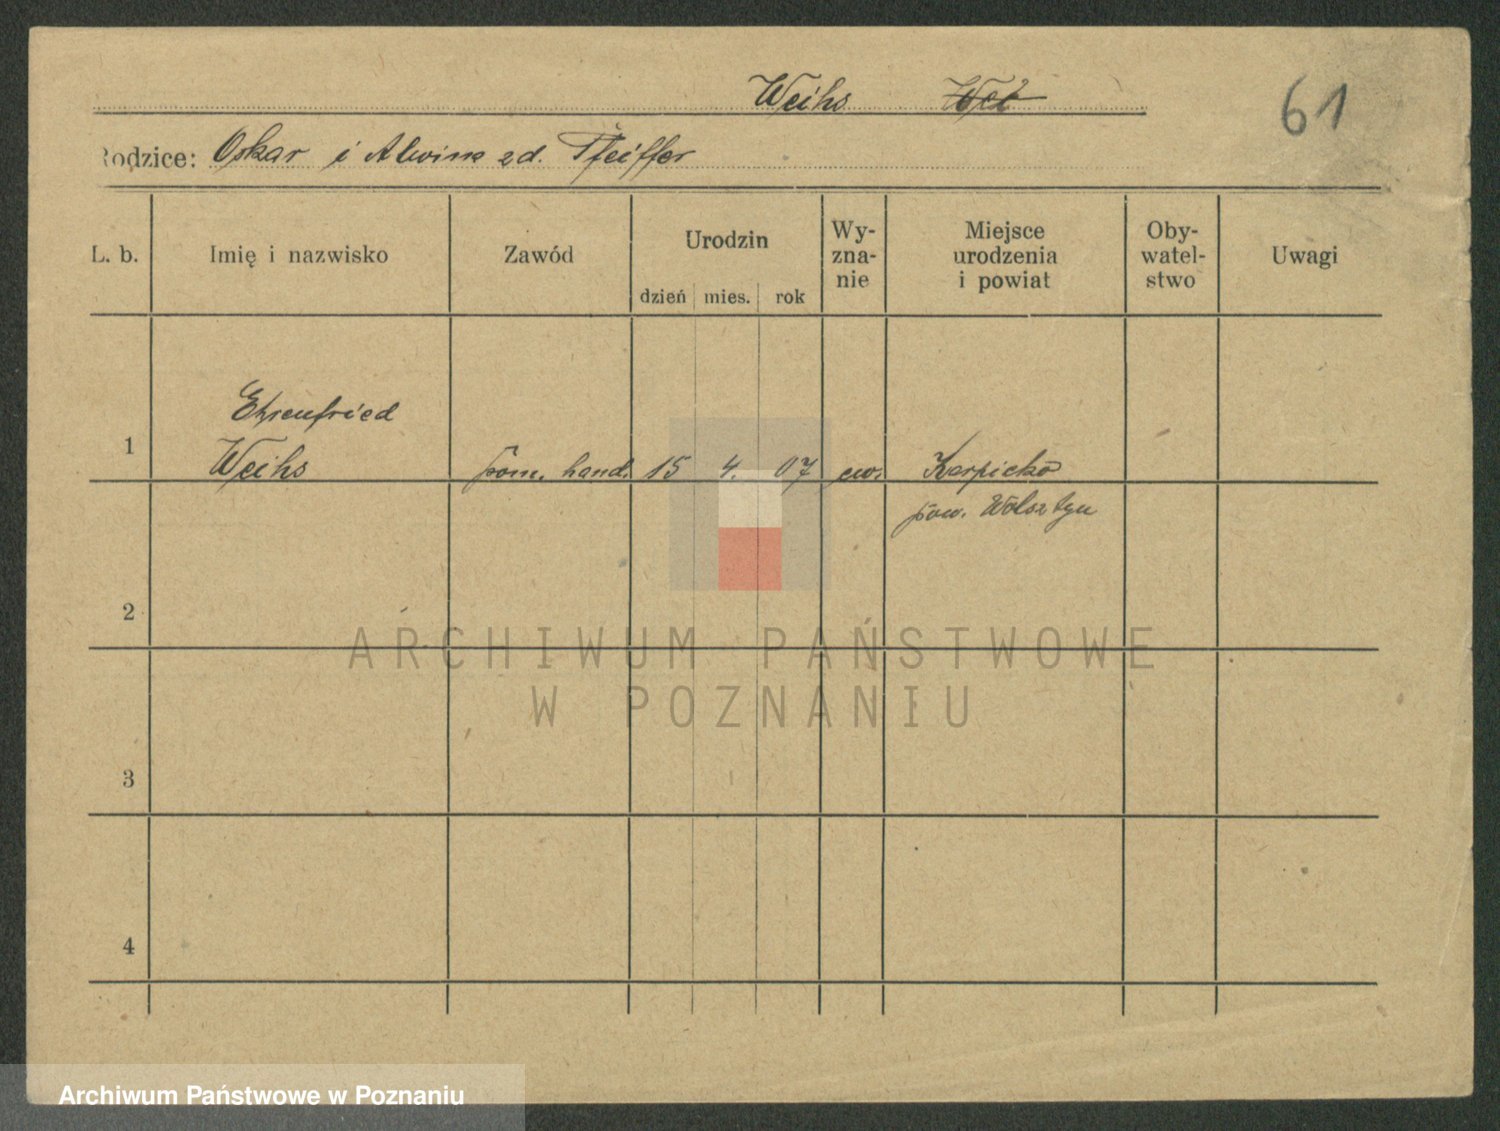 Weihs
61
Rodzice: Oskar i Alwina zd. Pfeiffer
L. b.
Imię i nazwisko
Zawód
Urodzin
dzień mies. rok
Wy-
zna-
nie
Miejsce
urodzenia
i powiat
Oby-
watel-
stwo
Uwagi
Ehrenfried
1 Weihs pom. hand. 15 4. 07 ew. Karpicko
pow. Wolsztyn
2
3
4
ARCHIWUM PAŃSTWOWE
W POZNANIU
Archiwum Państwowe w Poznaniu